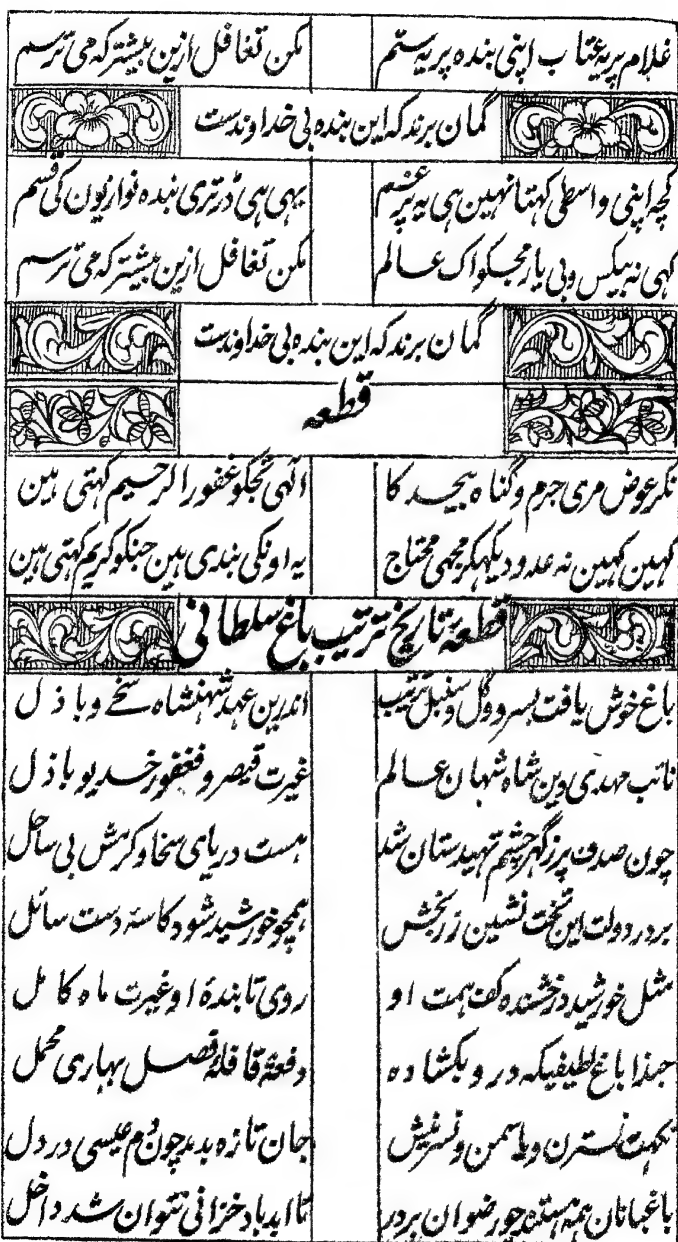 غلام پر یہ عتاب اپنی بندہ پر یہ ستم مکن تغافل ازین بیشتر کہ می ترسم
گمان برند کہ این بندہ بی خداوندست
کچہ اپنی واسطی کہتا نہین ہی یہ پر غم یہی ہی ڈر تری بندہ نوازیون کی قسم
کہی نہ بیکس و بی یار مجکو اک عالم مکن تغافل ازین بیشتر کہ می ترسم
گمان برند کہ این بندہ بی خداوندست
قطعہ
نکر عوض مری جرم و گناہ بیحد کا الہی تجکو غفور الرحیم کہتی ہین
کہین کہین نہ عدو دیکہکر مجہی محتاج یہ اونکی بندی ہین جنکو کریم کہتی ہین
قطعۂ تاریخ ترتیب باغ سلطانی
باغ خوش یافت بسرو و گل و سنبل ترتیب اندرین عہد شہنشاہ سخے و باذل
نائب مہدی دین شاہ شہان عالم غیرت قیصر و فغفور خدیو باذل
چون صدف پر ز گہر چشم تہیدستان شد ہست دریای سخا و کرمش بی ساحل
بر در دولت این تخت نشین زر بخش ہمچو خورشید شود کاسۂ دست سائل
مثل خورشید درخشندہ کف ہمت او روی تابندۂ او غیرت ماہ کامل
حبذا باغ لطیفیکہ درو بکشادہ دفعۃً قافلۂ فصل بہاری محمل
نکہت نسترن و یاسمن و نسرینش جان تازہ بدمد چون دم عیسی در دل
باغبانان ہمہ ہستند چو رضوان بر در تا ابد باد خزانی نتوان شد داخل